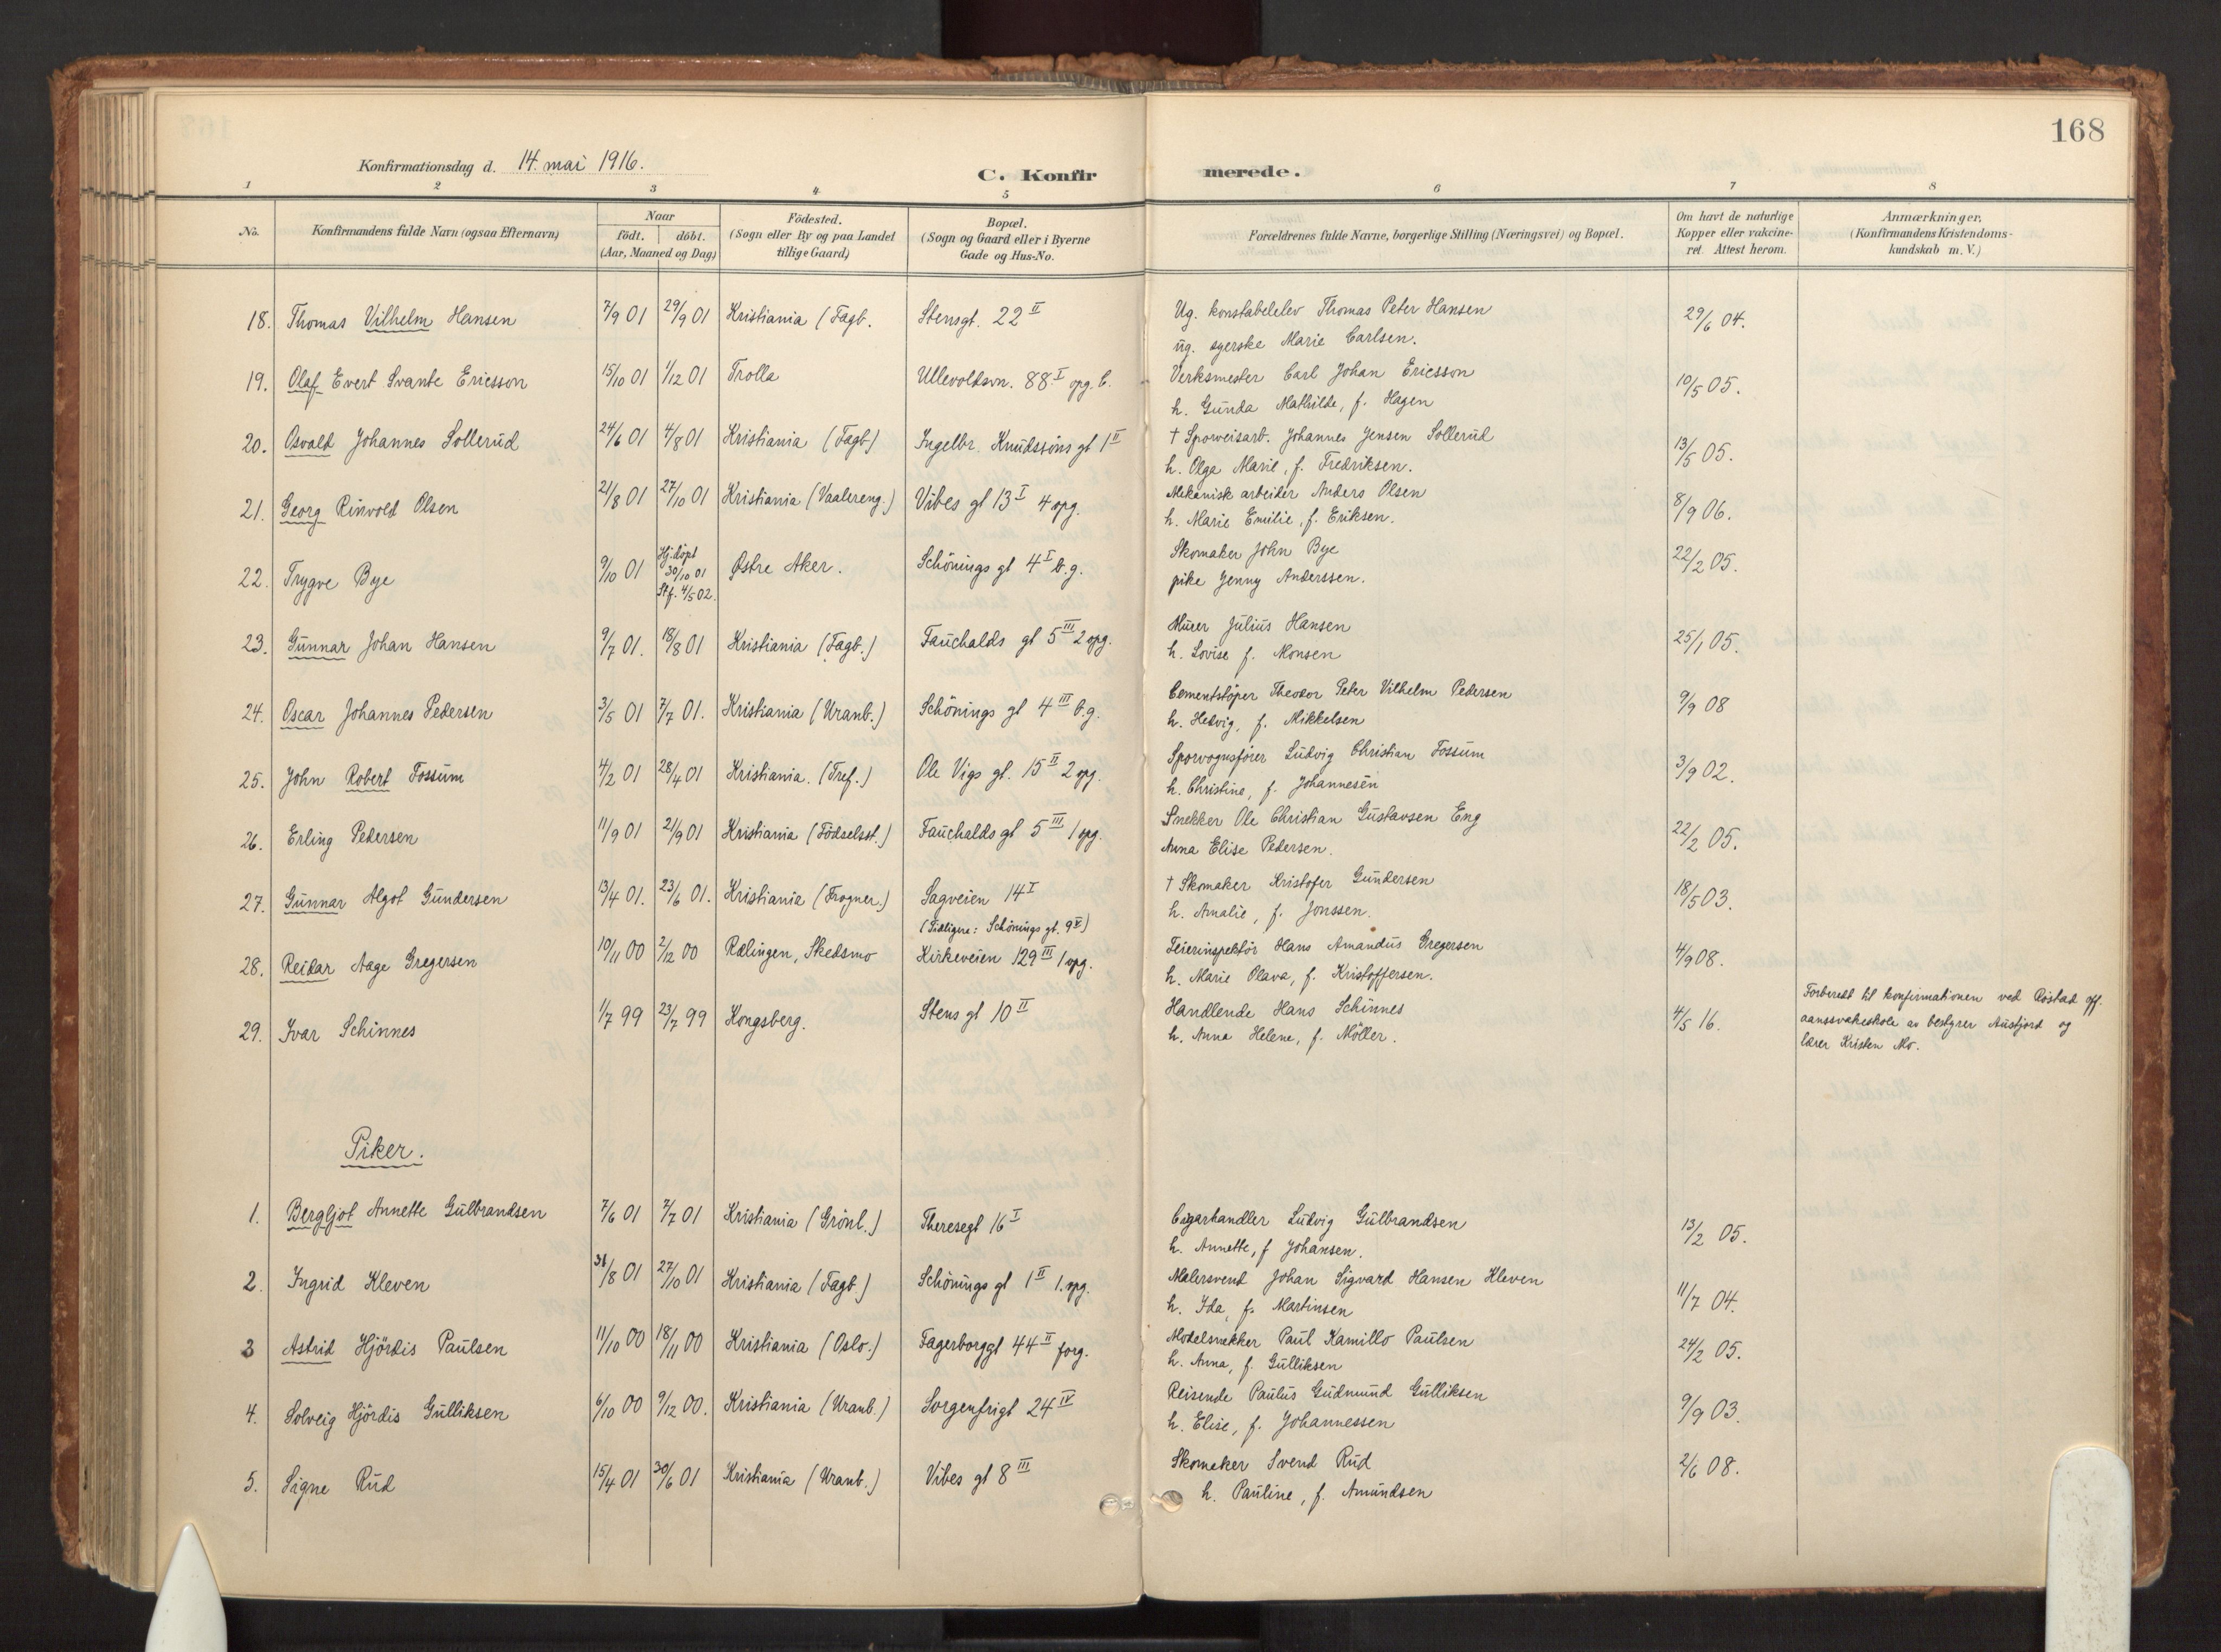 168
Konfirmationsdag d. 14. mai 1916.
C. Konfirmerede.
1 2 3 4. 5 6 7 8
No.
Konfirmandens fulde Navn (ogsaa Efternavn)
Naar
födt. döbt.
(Aar, Maaned og Dag)
Födested.
(Sogn eller By og paa Landet
tillige Gaard)
Bopæl.
(Sogn og Gaard eller i Byerne
Gade og Hus-No.
Forældrenes fulde Navne, borgerlige Stilling (Næringsvei) og Bopæl.
Om havt de naturlige
Kopper eller vakcine-
ret. Attest herom.
Anmærkninger.
(Konfirmandens Kristendoms-
kundskab m. V.)
18. Thomas Vilhelm Hansen 7/9 01 29/9 01 Kristiania (Fagb. Stensgt. 22 II Ug. konstabelelev Thomas Peter Hansen 29/6 04.
ug. syerske Marie Carlsen.
19. Olaf Evert Svante Ericsson 15/10 01 1/12 01 Trolla Ullevoldsvn. 88 I opg. b. Verksmester Carl Johan Ericsson 10/5 05.
h. Gunda Mathilde, f. Hagen
20. Osvald Johannes Sollerud 24/6 01 4/8 01 Kristiania (Fagb) Ingelbr. Knudssöns gt 1 II † Sporveisarb. Johannes Jensen Sollerud 13/5 05.
h. Olga Marie, f. Fredriksen.
21. Georg Rinvold Olsen 21/8 01 27/10 01 Kristiania (Vaalereng.) Vibes gt 13 I 4 opg. Mekanisk arbeider Anders Olsen 8/9 06.
h. Marie Emilie, f. Eriksen.
22. Trygve Bye 9/10 01 Hj.döpt 30/10 01 Stf. 4/5 02. Østre Aker. Schönings gt 4 I b.g. Skomaker John Bye 22/2 05.
pike Jenny Anderssen.
23. Gunnar Johan Hansen 9/7 01. 18/8 01 Kristiania (Fagb.) Fauchalds gt 5 III 2 opg. Murer Julius Hansen 25/1 05.
h. Lovise f. Monsen
24. Oscar Johannes Pedersen 3/5 01 7/7 01. Kristiania (Uranb.) Schönings gt 4 III b.g. Cementstöper Theodor Peter Vilhelm Pedersen 9/9 08
h. Hedvig, f. Mikkelsen
25. John Robert Fossum 4/2 01 28/4 01 Kristiania. (Tref.) Ole Vigs gt. 15 II 2 opg. Sporvognsfører Ludvig Christian Fossum 3/9 02.
h. Christine, f. Johannesen
26. Erling Pedersen 11/9 01 21/9 01 Kristiania (Födselsst.) Fauchalds gt 5 III 1 opg. Snekker Ole Christian Gustavsen Eng 22/2 05.
Anna Elise Pedersen.
27. Gunnar Algot Gundersen 13/4 01. 23/6 01. Kristiania (Frogner.) Sagveien 14 I † Skomaker Kristofer Gundersen 18/5 03.
(Tidligere: Schönings gt. 9 V) h. Amalie, f. Jonssen.
28. Reidar Aage Gregersen 10/11 00 2/12 00 Rælingen, Skedsmo Kirkeveien 129 III 1 opg. Feierinspektör Hans Amandus Gregersen 4/9 08.
h. Marie Olava, f. Kristoffersen.
29. Ivar Schinnes 1/7 99 23/7 99 Kongsberg. Stens gt 10 II Handlende Hans Schinnes 4/5 16. Forberedt til konfirmationen ved Röstad off.
h. Anna Helene, f. Möller. aanssvakeskole av bestyrer Austjord og
lærer Kristen Mo.
Piker.
1. Bergljot Annette Gulbrandsen 7/6 01 7/7 01 Kristiania (Grönl.) Theresegt 16 I Cigarhandler Ludvig Gulbrandsen 13/2 05.
h. Annette, f Johansen.
2. Ingrid Kleven 31/8 01 27/10 01 Kristiania (Fagb.) Schönings gt 1 II 1. opg. Malersvend Johan Sigvard Hansen Kleven 11/7 04.
h. Ida, f. Martinsen
3 Astrid Hjördis Paulsen 11/10 00 18/11 00 Kristiania (Oslo.) Fagerborggt 44 II forg. Modelsnekker Paul Kamillo Paulsen 24/2 05.
h. Anna, f. Gulliksen
4. Solveig Hjördis Gulliksen 6/10 00 9/12 00. Kristiania (Uranb.) Sorgenfrigt 24 IV Reisende Paulus Gudmund Gulliksen 9/9 03.
h. Elise, f. Johannessen
5. Signe Rud 15/4 01 30/6 01 Kristiania (Uranb.) Vibes gt 8 III Skomaker Svend Rud 2/6 08.
h. Pauline, f. Amundsen